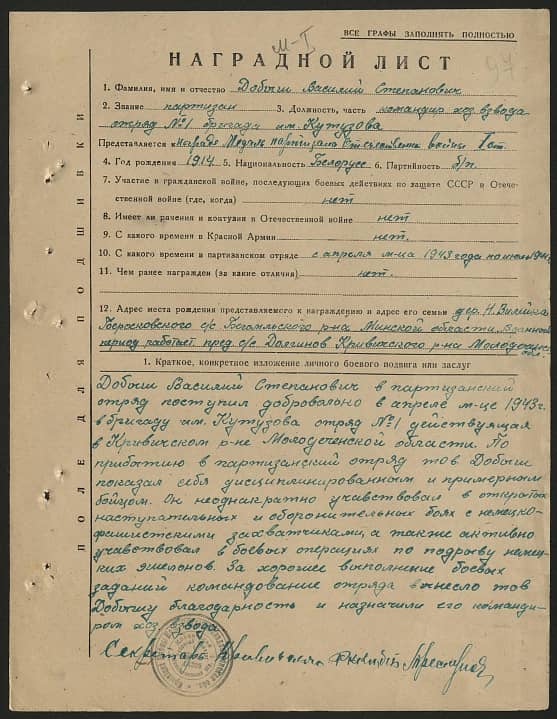 ВСЕ ГРАФЫ ЗАПОЛНЯТЬ ПОЛНОСТЬЮ
М-I
97
НАГРАДНОЙ ЛИСТ
1. Фамилия, имя и отчество Добыш Василий Степанович
2. Звание партизан 3. Должность, часть командир хоз взвода
отряд №1 бригада им. Кутузова
Представляется к награде Медаль партизана Отечественной войны 1 ст.
4. Год рождения 1914 5. Национальность Белорус 6. Партийность б/п
7. Участие в гражданской войне, последующих боевых действиях по защите СССР и Отече-
ственной войне (где, когда) нет
8. Имеет ли ранения и контузии в Отечественной войне нет
9. С какого времени в Красной Армии нет.
10. С какого времени в партизанском отряде с апреля м-ца 1943 года по июль 1944
11. Чем ранее награжден (за какие отличия) нет.
12. Адрес места рождения представляемого к награждению и адрес его семьи дер. Н. Вилейка
с/с Бегомльского р-на Минской области. В данный
период работает пред. с/с Долгинов Кривичского р-на Молодечн. обл.
1. Краткое, конкретное изложение личного боевого подвига или заслуг
Добыш Василий Степанович в партизанский
отряд поступил добровально в апреле м-це 1943 г.
в бригаду им. Кутузова отряд №1 действующая
в Кривичском р-не Молодеченской области. По
прибытию в партизанский отряд тов Добыш
показал себя дисциплинированным и примерным
бойцом. Он неоднакратно учавствовал в открытых
наступательных и оборонительных боях с немецко-
фашистскими захватчиками, а также активно
учавствовал в боевых операциях по подрыву немец-
ких эшелонов. За хорошее выполнение боевых
заданий командование отряда вынесло тов
Добышу благодарность и назначили его команди-
ром хоз взвода.
Секретарь
ПОЛЕ ДЛЯ ПОДШИВКИ